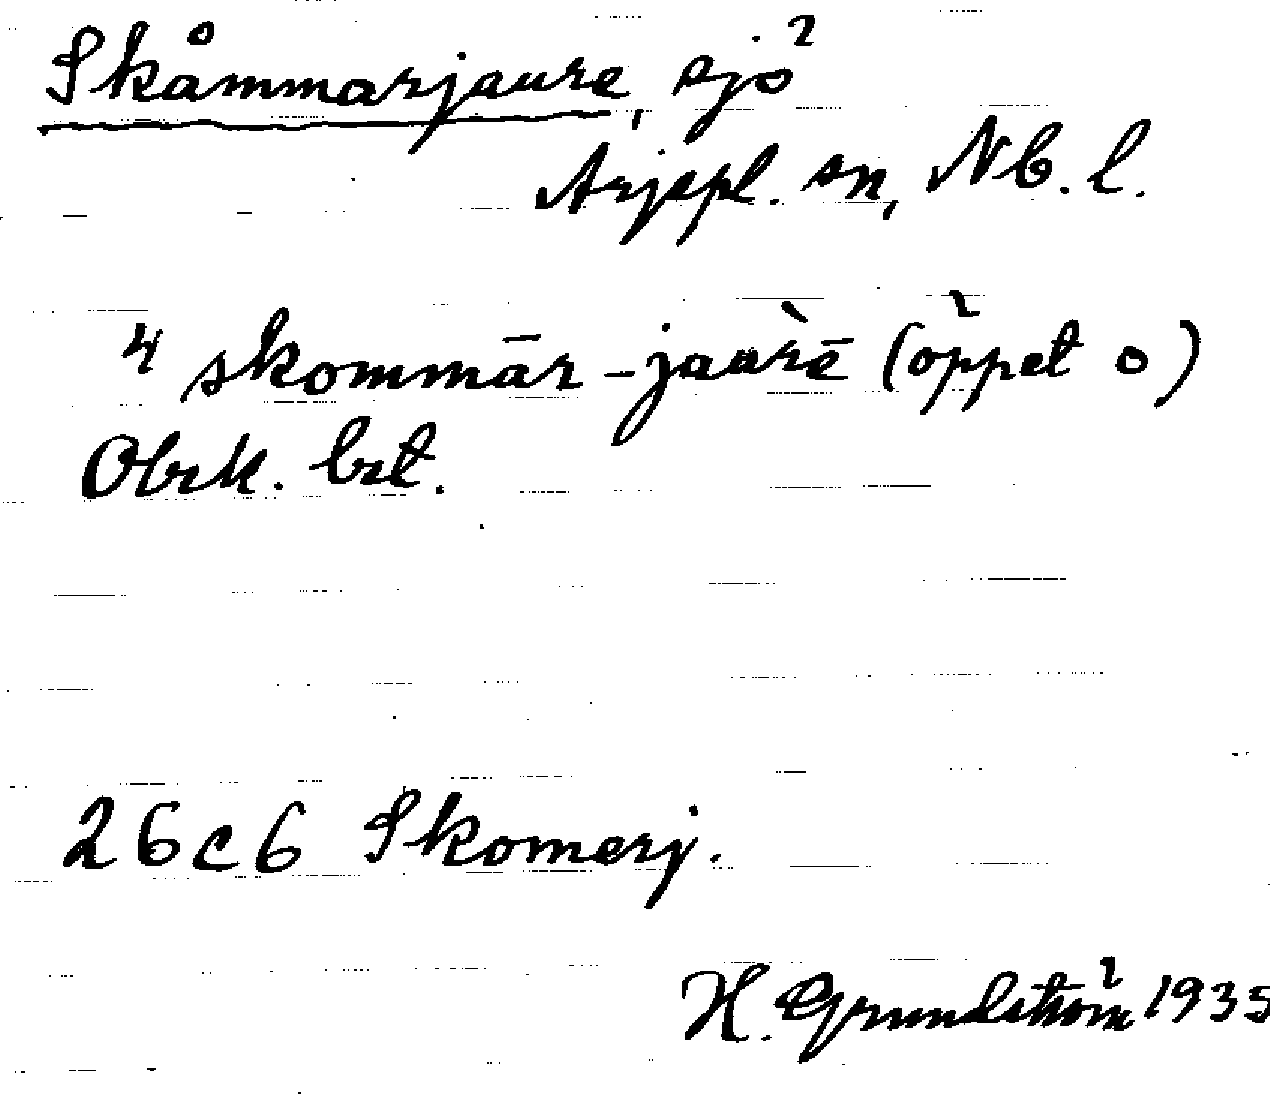 Skåmmarjaure, sjö
Arjepl. sn, Nb. l.
4 skommār-jaùrē (öppet o)
Obrk. brt.
26c6 Skomerj.
H. Grundström 1935